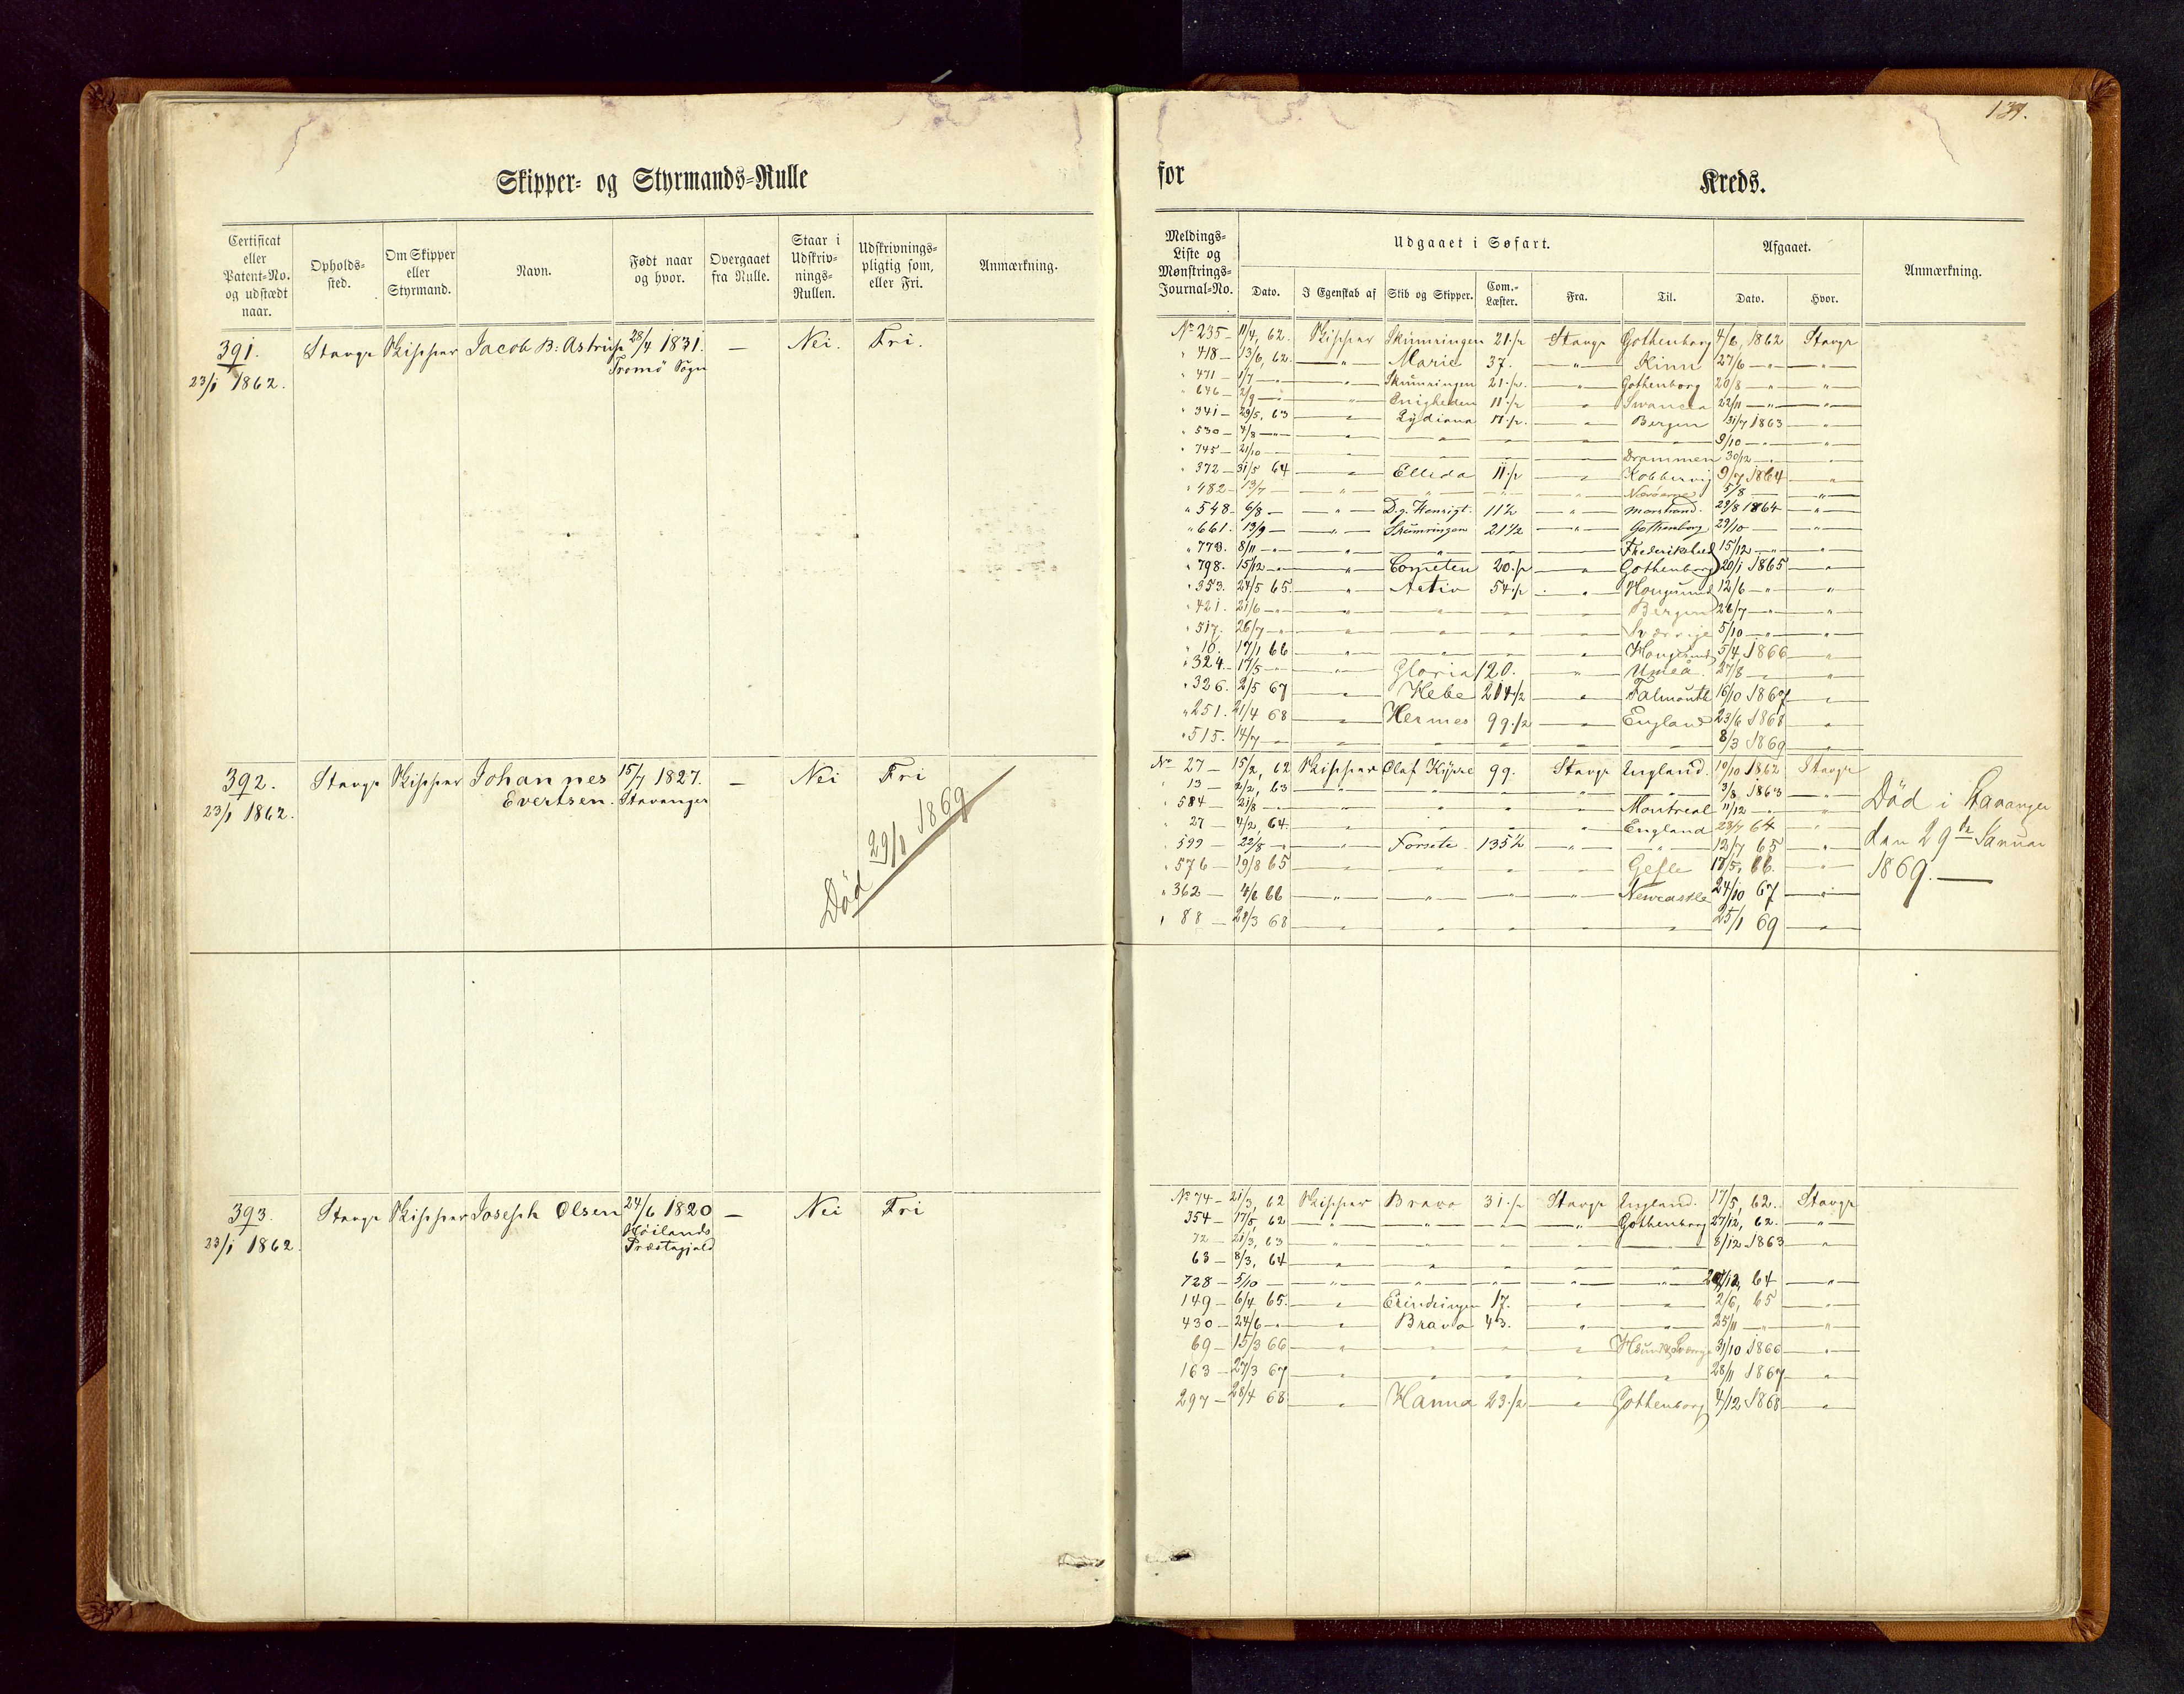 139.
Skipper- og Styrmands-Rulle
for Kreds.
Certificat eller Patent-No. og udstædt naar.
Opholds-sted.
Om Skipper eller Styrmand.
Navn.
Født naar og hvor.
Overgaaet fra Rulle.
Staar i Udskriv-nings-Rullen.
Udskrivnings-pligtig som, eller Fri.
Anmærkning.
Meldings-Liste og Mønstrings-Journal-No.
Udgaaet i Søfart.
Dato.
I Egenskab af
Skib og Skipper.
Com.-Læster.
Fra.
Til.
Afgaaet.
Dato.
Hvor.
Anmærkning.
391. Stavgr Skipper Jacob B. Astrup 28/4 1831. — Nei. Fri.
23/1 1862. Tromö Sogn
No 235 — 11/4, 62. Skipper Skumringen 21 1/2 Stavgr Gothenborg 4/6, 1862 Stavgr
" 418 — 13/6, 62. " Marie 37. " Kinn 27/6 — " "
" 471 — 1/7 — " " Skumringen 21 1/2. " Gothenborg 20/8 — " "
" 646 — 2/9 — " " Enigheden 11 1/2 " Swansea 22/11 — " "
" 341 — 29/5, 63 " Lydiana 17 1/2. " Bergen 31/7 1863 "
" 530 — 4/8 — " " " " " " 9/10 — " "
" 745 — 21/10 — Drammen 30/12 — " "
" 372 — 31/5 64 " Ellida 11 1/2 " Kobbervig 9/7 1864 "
" 482 — 13/7 — " " " " 5/8 — "
" 548 — 6/8 — " D.g. Hensigt. 11 1/2 " Marstrand. 29/8 1864 "
" 661. 13/9 — " Skumringen 21 1/2 " Gothenborg 29/10 — "
" 779. 8/11 — " " " Frederikshald 15/12 — " "
" 798. 15/12 — " " Cometen 20 1/2 " Gothenborg 20/1 1865 "
" 353. 24/5 65. " Activ 54 1/2 " Haugesund 12/6 — " "
" 421. 21/6 — " " " " " Bergen 26/7 — " "
" 517. 26/7 — " " " " " Sverrige 5/10 — " "
" 10. 17/1 66 " " " " Haugesund 5/4 1866 "
" 324. 17/5 — " Gloria 120. " Umeå. 27/8 — " "
" 326. 2/5 67 " Hebe 214 1/2 " Falmouth 16/10 1867 "
" 251. 21/4 68 " Hermes 99 1/2 " England 23/6 1868 "
" 515. 14/7 — " " " " " " 8/3 1869 "
392. Stavgr Skipper Johannes 15/7 1827. — Nei Fri
23/1 1862. Evertsen. Stavanger
Död 29/1 1869
No 27 — 15/2, 62 Skipper Olaf Kyrre 99. Stavgr England. 10/10 1862 Stavgr
" 13 — 2/2, 63 " " " " " 3/8 1863 "
" 584 — 21/8 — " " " " " Montreal 11/12 — " "
" 27 — 4/2, 64. " " " " England 23/7 64 "
" 599 — 22/8 — " " Forsete. 135 1/2 " " 12/7 65 "
" 576 — 19/8 65 " " " " Gefle 17/5, 66. "
" 362 — 4/6 66 " " " " Newcastle 24/10 67 "
" 88 — 28/3 68 " " " " " 25/1 69 "
Död i Stavanger
den 29de Januar
1869. —
393. Stavgr Skipper Joseph Olsen 24/6 1820 — Nei Fri
23/1 1862. Höilands
Præstegjeld
No 74 — 21/3, 62 Skipper Bravo 31 1/2 Stavgr England. 17/5, 62. Stavgr
354 — 17/5, 62 " " " " Gothenborg 27/12, 62. "
72 — 21/3, 63 " " " " " 8/12 1863 "
63 — 8/3, 64 " " " " "
728 — 5/10 — " " " " " /12, 64 "
149 — 6/4 65. " Erindringen 17. " " 2/6, 65 "
430 — 24/6 — " " Bravo 43. " " 25/11 — " "
69 — 15/3 66 " " " " 31/10 1866 "
163 — 27/3 67 " " " " " 28/11 1867 "
297 — 28/4 68 " Hanna 23 1/2 " Gothenborg 4/12 1868 "